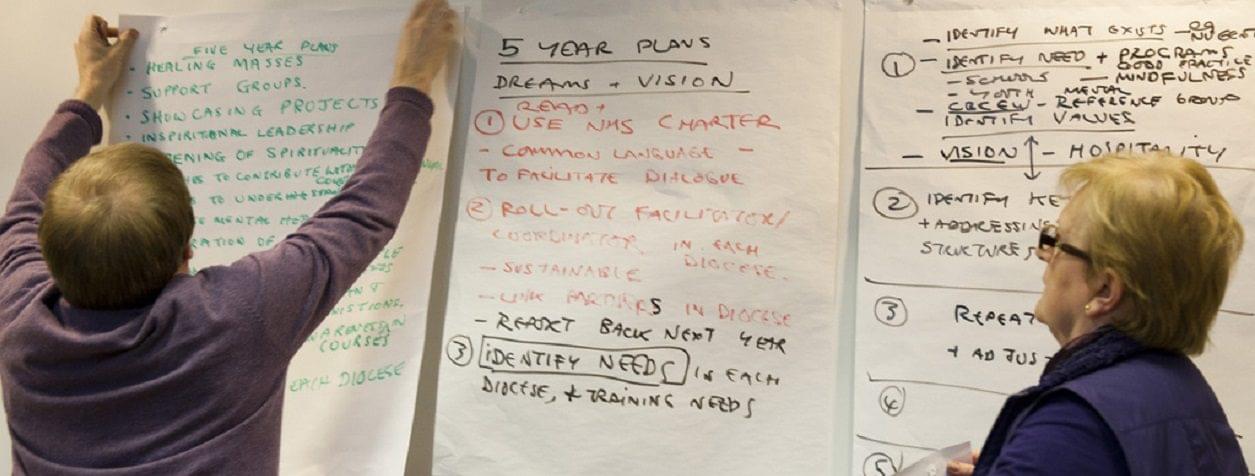 FIVE YEAR PLANS
· HEALING MASSES
· SUPPORT GROUPS.
· SHOWCASING PROJECTS
· INSPIRITIONAL LEADERSHIP
ENING OF SPIRITUALIT
TO CONTRIBUTE
TO UNDER
MENTAL
RATION OF
COURSES
EACH DIOCESE
5 YEAR PLANS
DREAMS + VISION
READ +
① USE NHS CHARTER
- COMMON LANGUAGE -
TO FACILITATE DIALOGUE
② ROLL-OUT FACILITATOR/
COORDINATOR IN EACH
DIOCESE.
- SUSTAINABLE
- LINK PARTNERS IN DIOCESE
- REPORT BACK NEXT YEAR
③ IDENTIFY NEEDS IN EACH
DIOCESE, + TRAINING NEEDS
- IDENTIFY WHAT EXISTS - eg
① - IDENTIFY NEED + PROGRAMS
GOOD PRACTICE
- SCHOOLS - MINDFULNESS
- YOUTH MENTAL
- CBCEW - REFERENCE GROUP
IDENTIFY VALUES
- VISION ↕ - HOSPITALITY
② IDENTIFY KE
+ ADDRESSIN
STRUCTURES
③ REPEAT
+ ADJUS
④
⑤